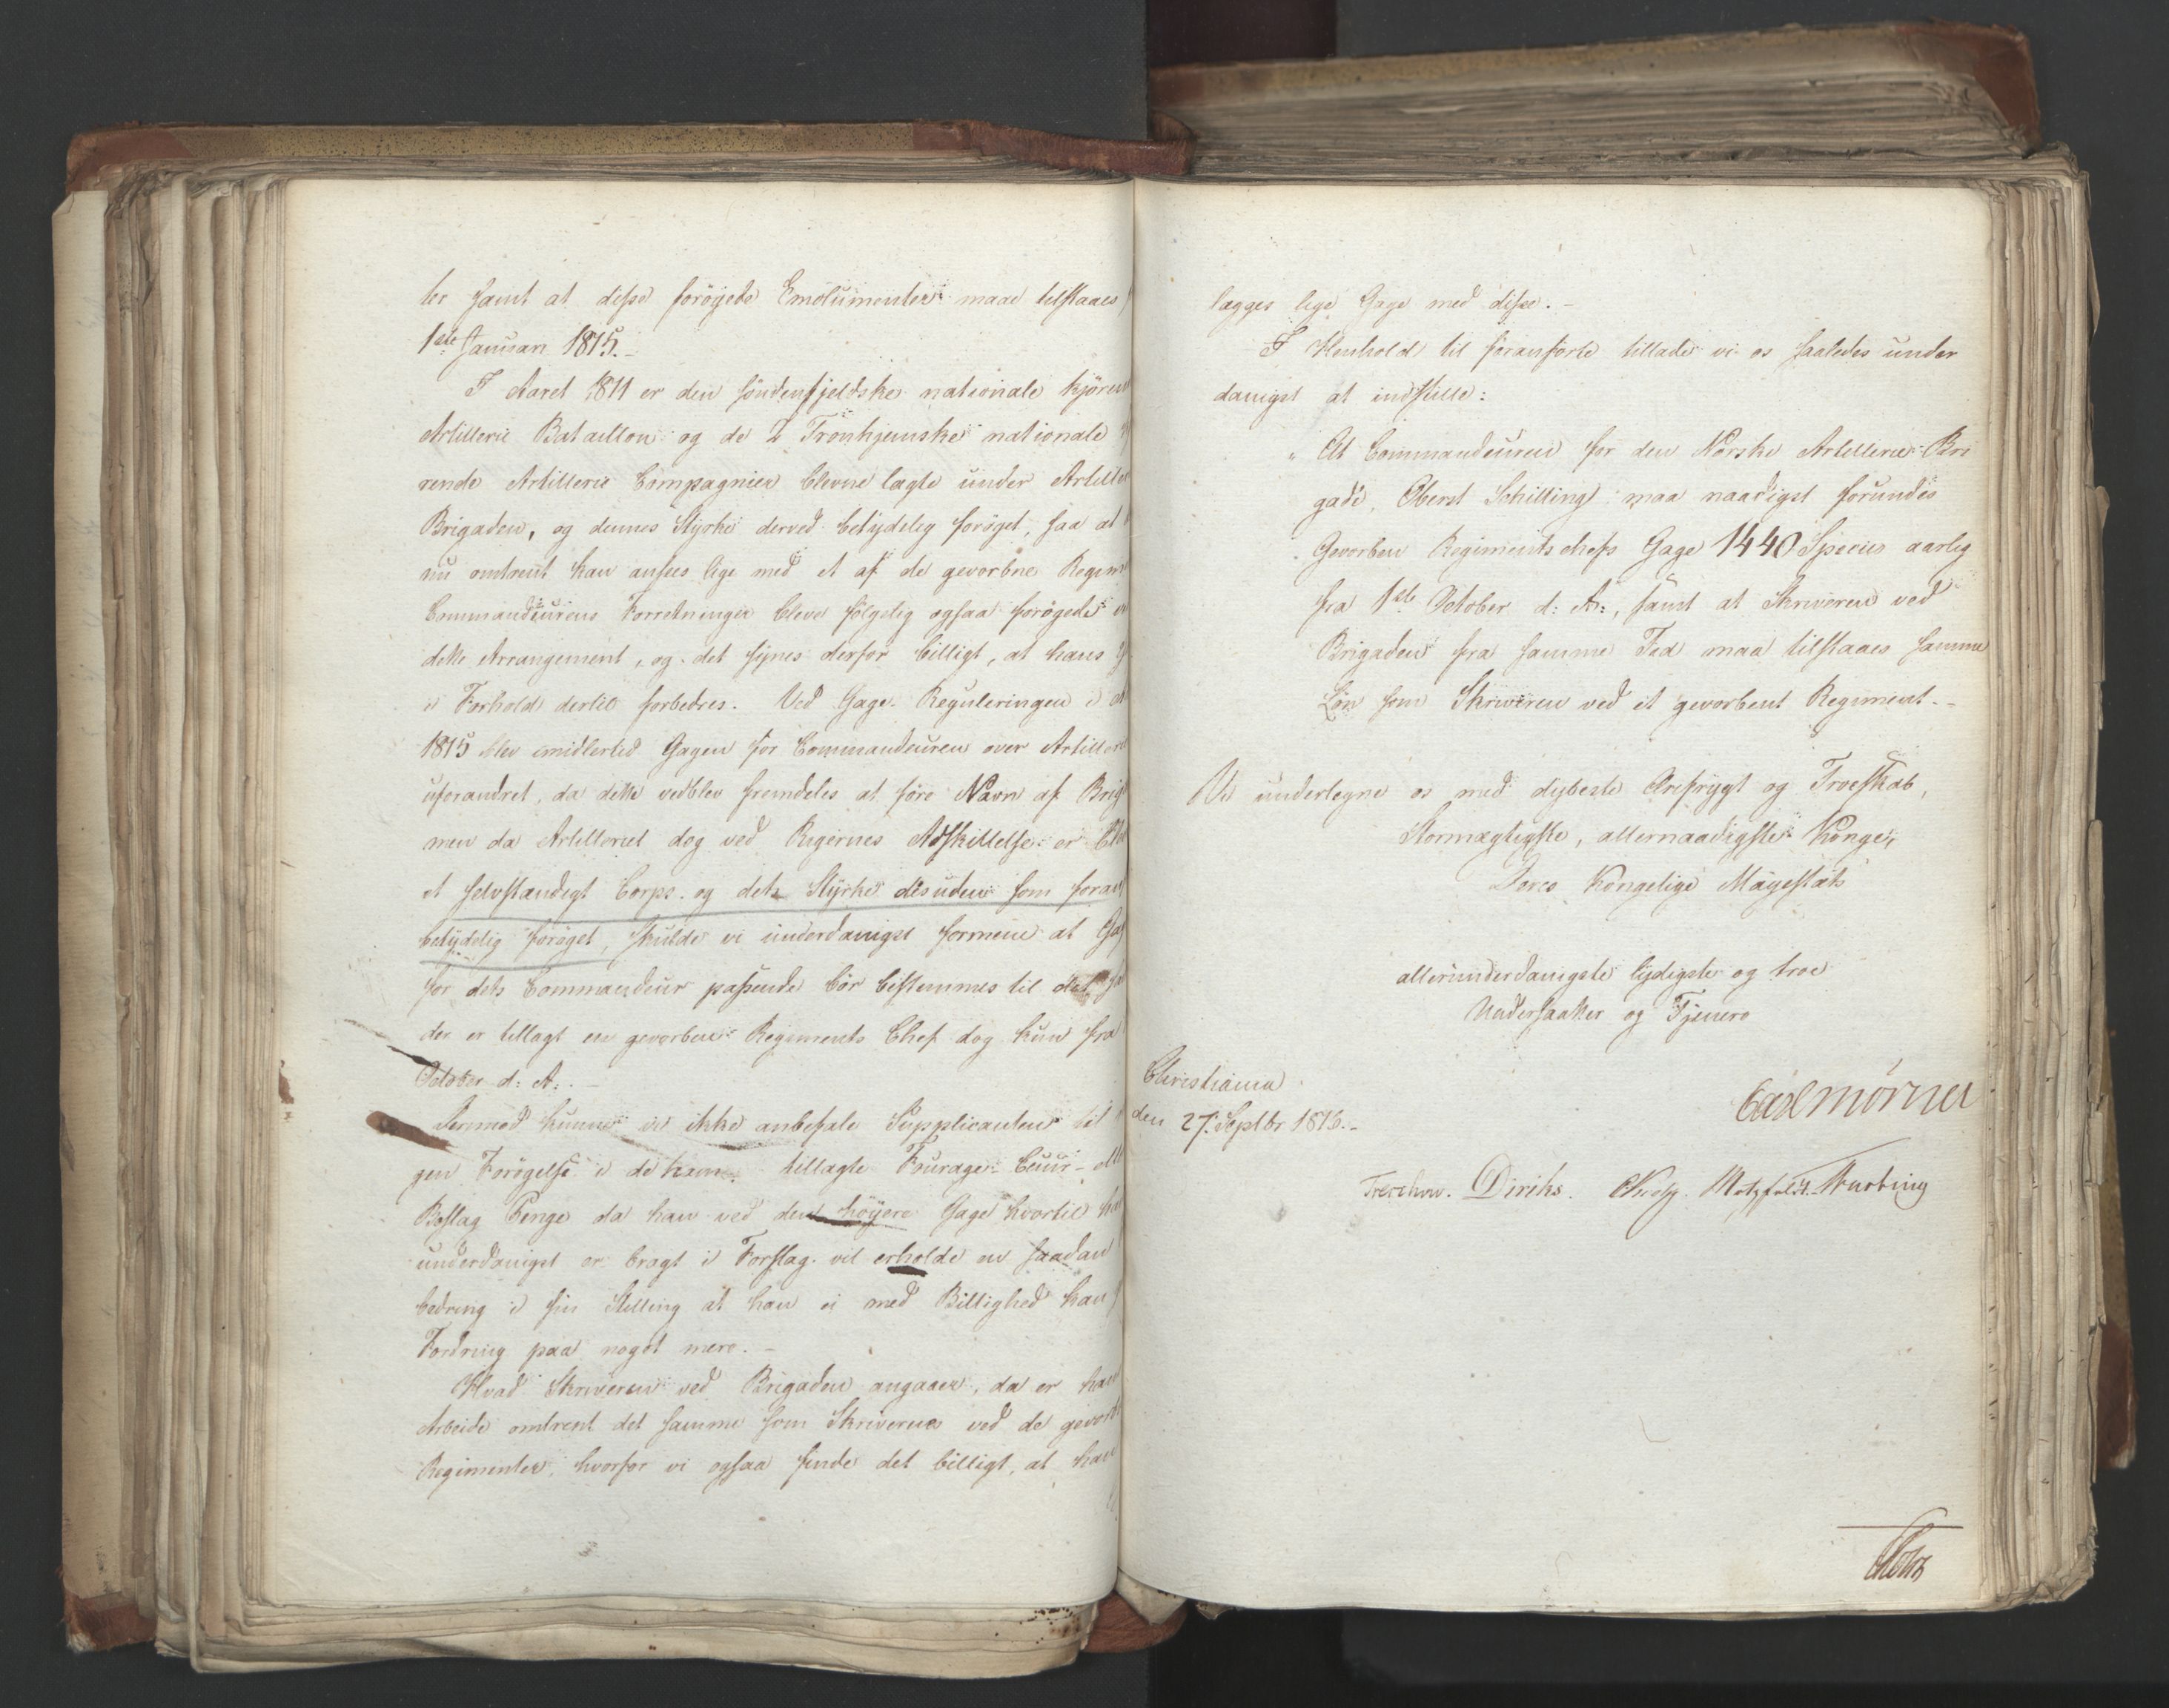 ter samt at disse forøgede Emolumenter maae tilstaaes
1ste Januari 1815.
I Aaret 1811 er den søndenfjeldske nationale kjøren
Artillerie Bataillon og de 2 Tronhjemske nationale
rende Artillerie Compagnier blevne lagte under Artille
Brigaden, og dennes Styrke derved betydelig forøget, saa at
nu omtrent kan ansees lige med et af de gevorbne Regim
Commandeurens Forretninger bleve følgelig ogsaa forøgede
dette Arrangement, og det synes derfor billigt, at hans
i Forhold dertil forbedres. Ved Gage Reguleringen i
1815 blev imidlertid Gagen for Commandeuren over Artiller
uforandret, da dette vedblev fremdeles at føre Navn af Brig
men da Artilleriet dog ved Rigernes Adskillelse er
et selvstændigt Corps og dets Styrke desuden som foran
betydelig forøget, skulde vi underdanigst formene at Ga
for dets Commandeur passende bør bestemmes til det
der er tillagt en gevorben Regiments Chef dog kun fra
October d: A:.
Dermed kunne vi ikke anbefale Supplicanten til
gen Forøgelse i de ham tillagte Fourage-Cuur-
Beslag Penge da han ved den høyere Gage hvortil
underdanigst er bragt i Forslag vil erholde en saadan
bedring i sin Stilling at han ei med Billighed kan
Fordring paa noget mere.-
Hvad Skriveren ved Brigaden angaaer, da er han
Arbeide omtrent det samme som Skrivernes ved de gevorb
Regimenter, hvorfor vi ogsaa finde det billigt, at han
lægges lige Gage med disse.-
I Henhold til foranførte tillade vi os saaledes under
danigst at indstille:
" At Commandeuren for den Norske Artillerie-Bri
gade, Oberst Schilling maa naadigst forundes
Gevorben Regimentschefs Gage 1440 Species aarlig
fra 1ste October d: A:, samt at Skriveren ved
Brigaden fra samme Tid maa tilstaaes samme
Løn som Skriveren ved et gevorbent Regiment.-
Vi undertegne os med dybeste Ærefrygt og Troeskab,
Stormægtigste, allernaadigste Konge,
Deres Kongelige Mayestæts
allerunderdanigste lydigste og troe
Undersaatter og Tjenere
Christiania
den 27. Septbr 1816.-
Carl Mörner
Treschow. Diriks. Krog. Motzfeldt. Hurbing